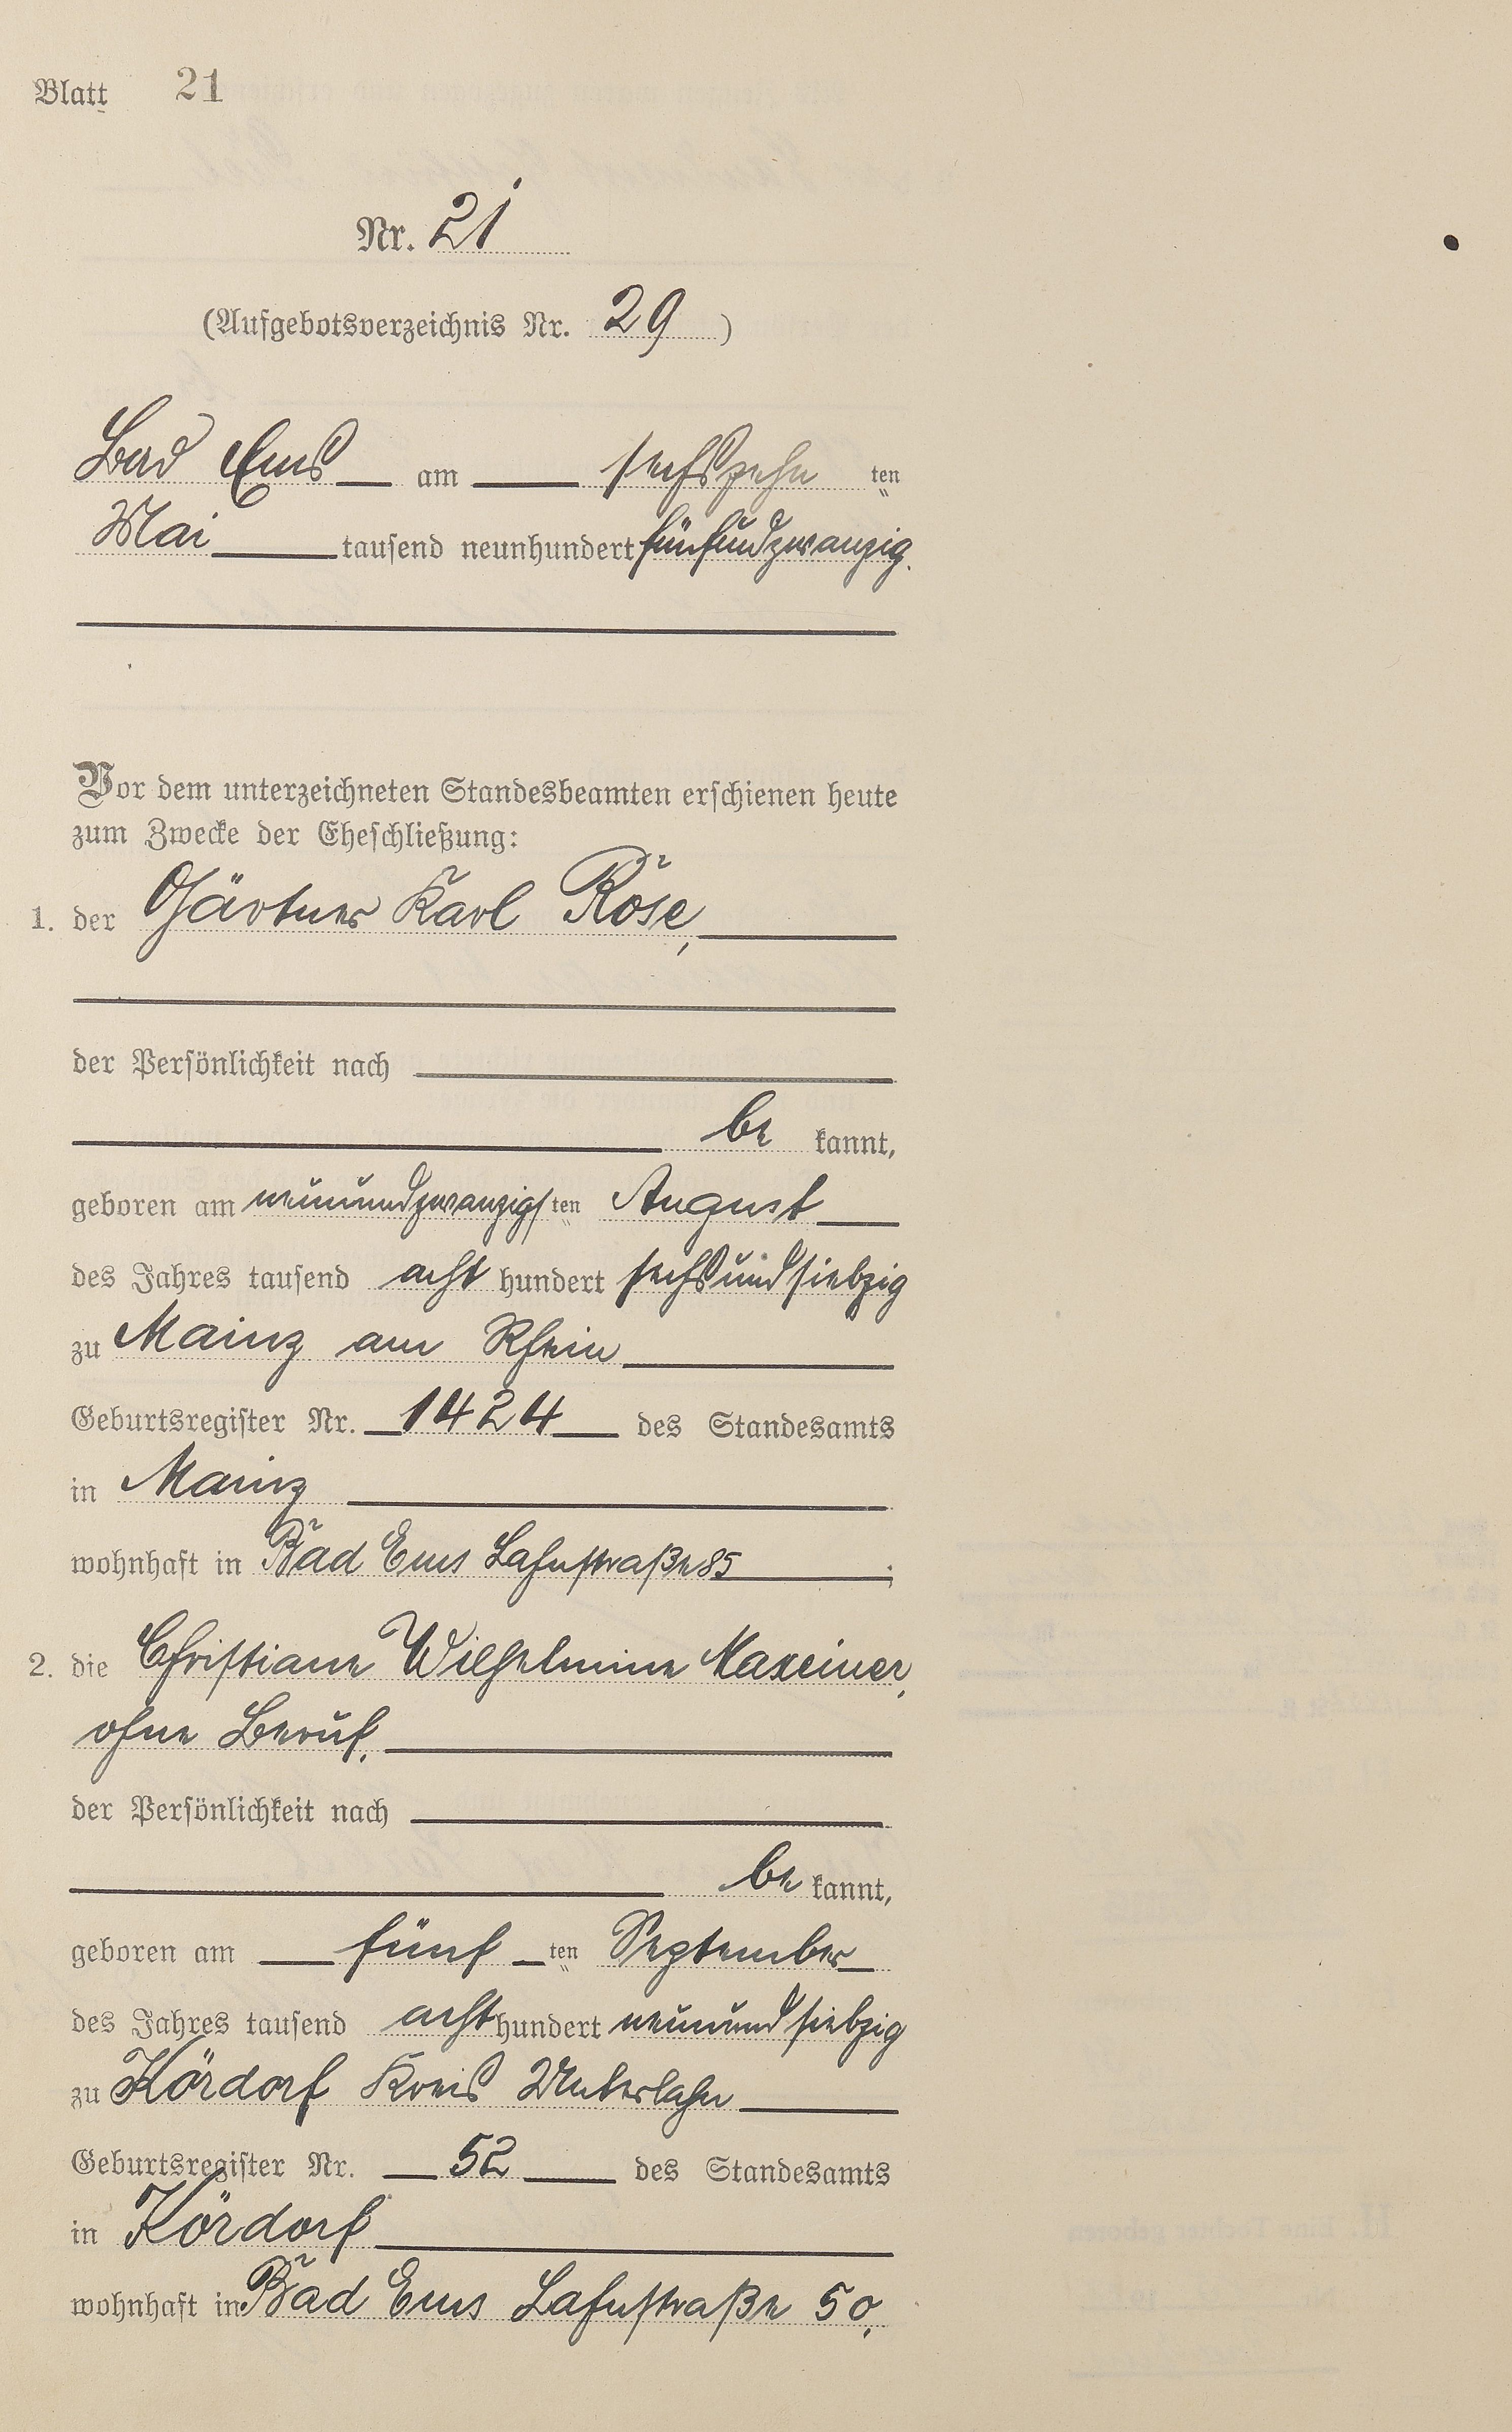 Blatt 21
Nr. 21
(Aufgebotsverzeichnis Nr. 29)
Bad Ems am sechszehn ten
Mai tausend neunhundert fünfundzwanzig.
Vor dem unterzeichneten Standesbeamten erschienen heute
zum Zwecke der Eheschließung:
1. der Gärtner Karl Röse,
der Persönlichkeit nach
be kannt,
geboren am neunundzwanzigsten August
des Jahres tausend acht hundert sechsundsiebzig
zu Mainz am Rhein
Geburtsregister Nr. 1424 des Standesamts
in Mainz
wohnhaft in Bad Ems Lahnstraße 85;
2. die Christiane Wilhelmine Maxeiner,
ohne Beruf,
der Persönlichkeit nach
be kannt,
geboren am fünf ten September
des Jahres tausend acht hundert neunundsiebzig
zu Kördorf Kreis Unterlahn
Geburtsregister Nr. 52 des Standesamts
in Kördorf
wohnhaft in Bad Ems Lahnstraße 50.